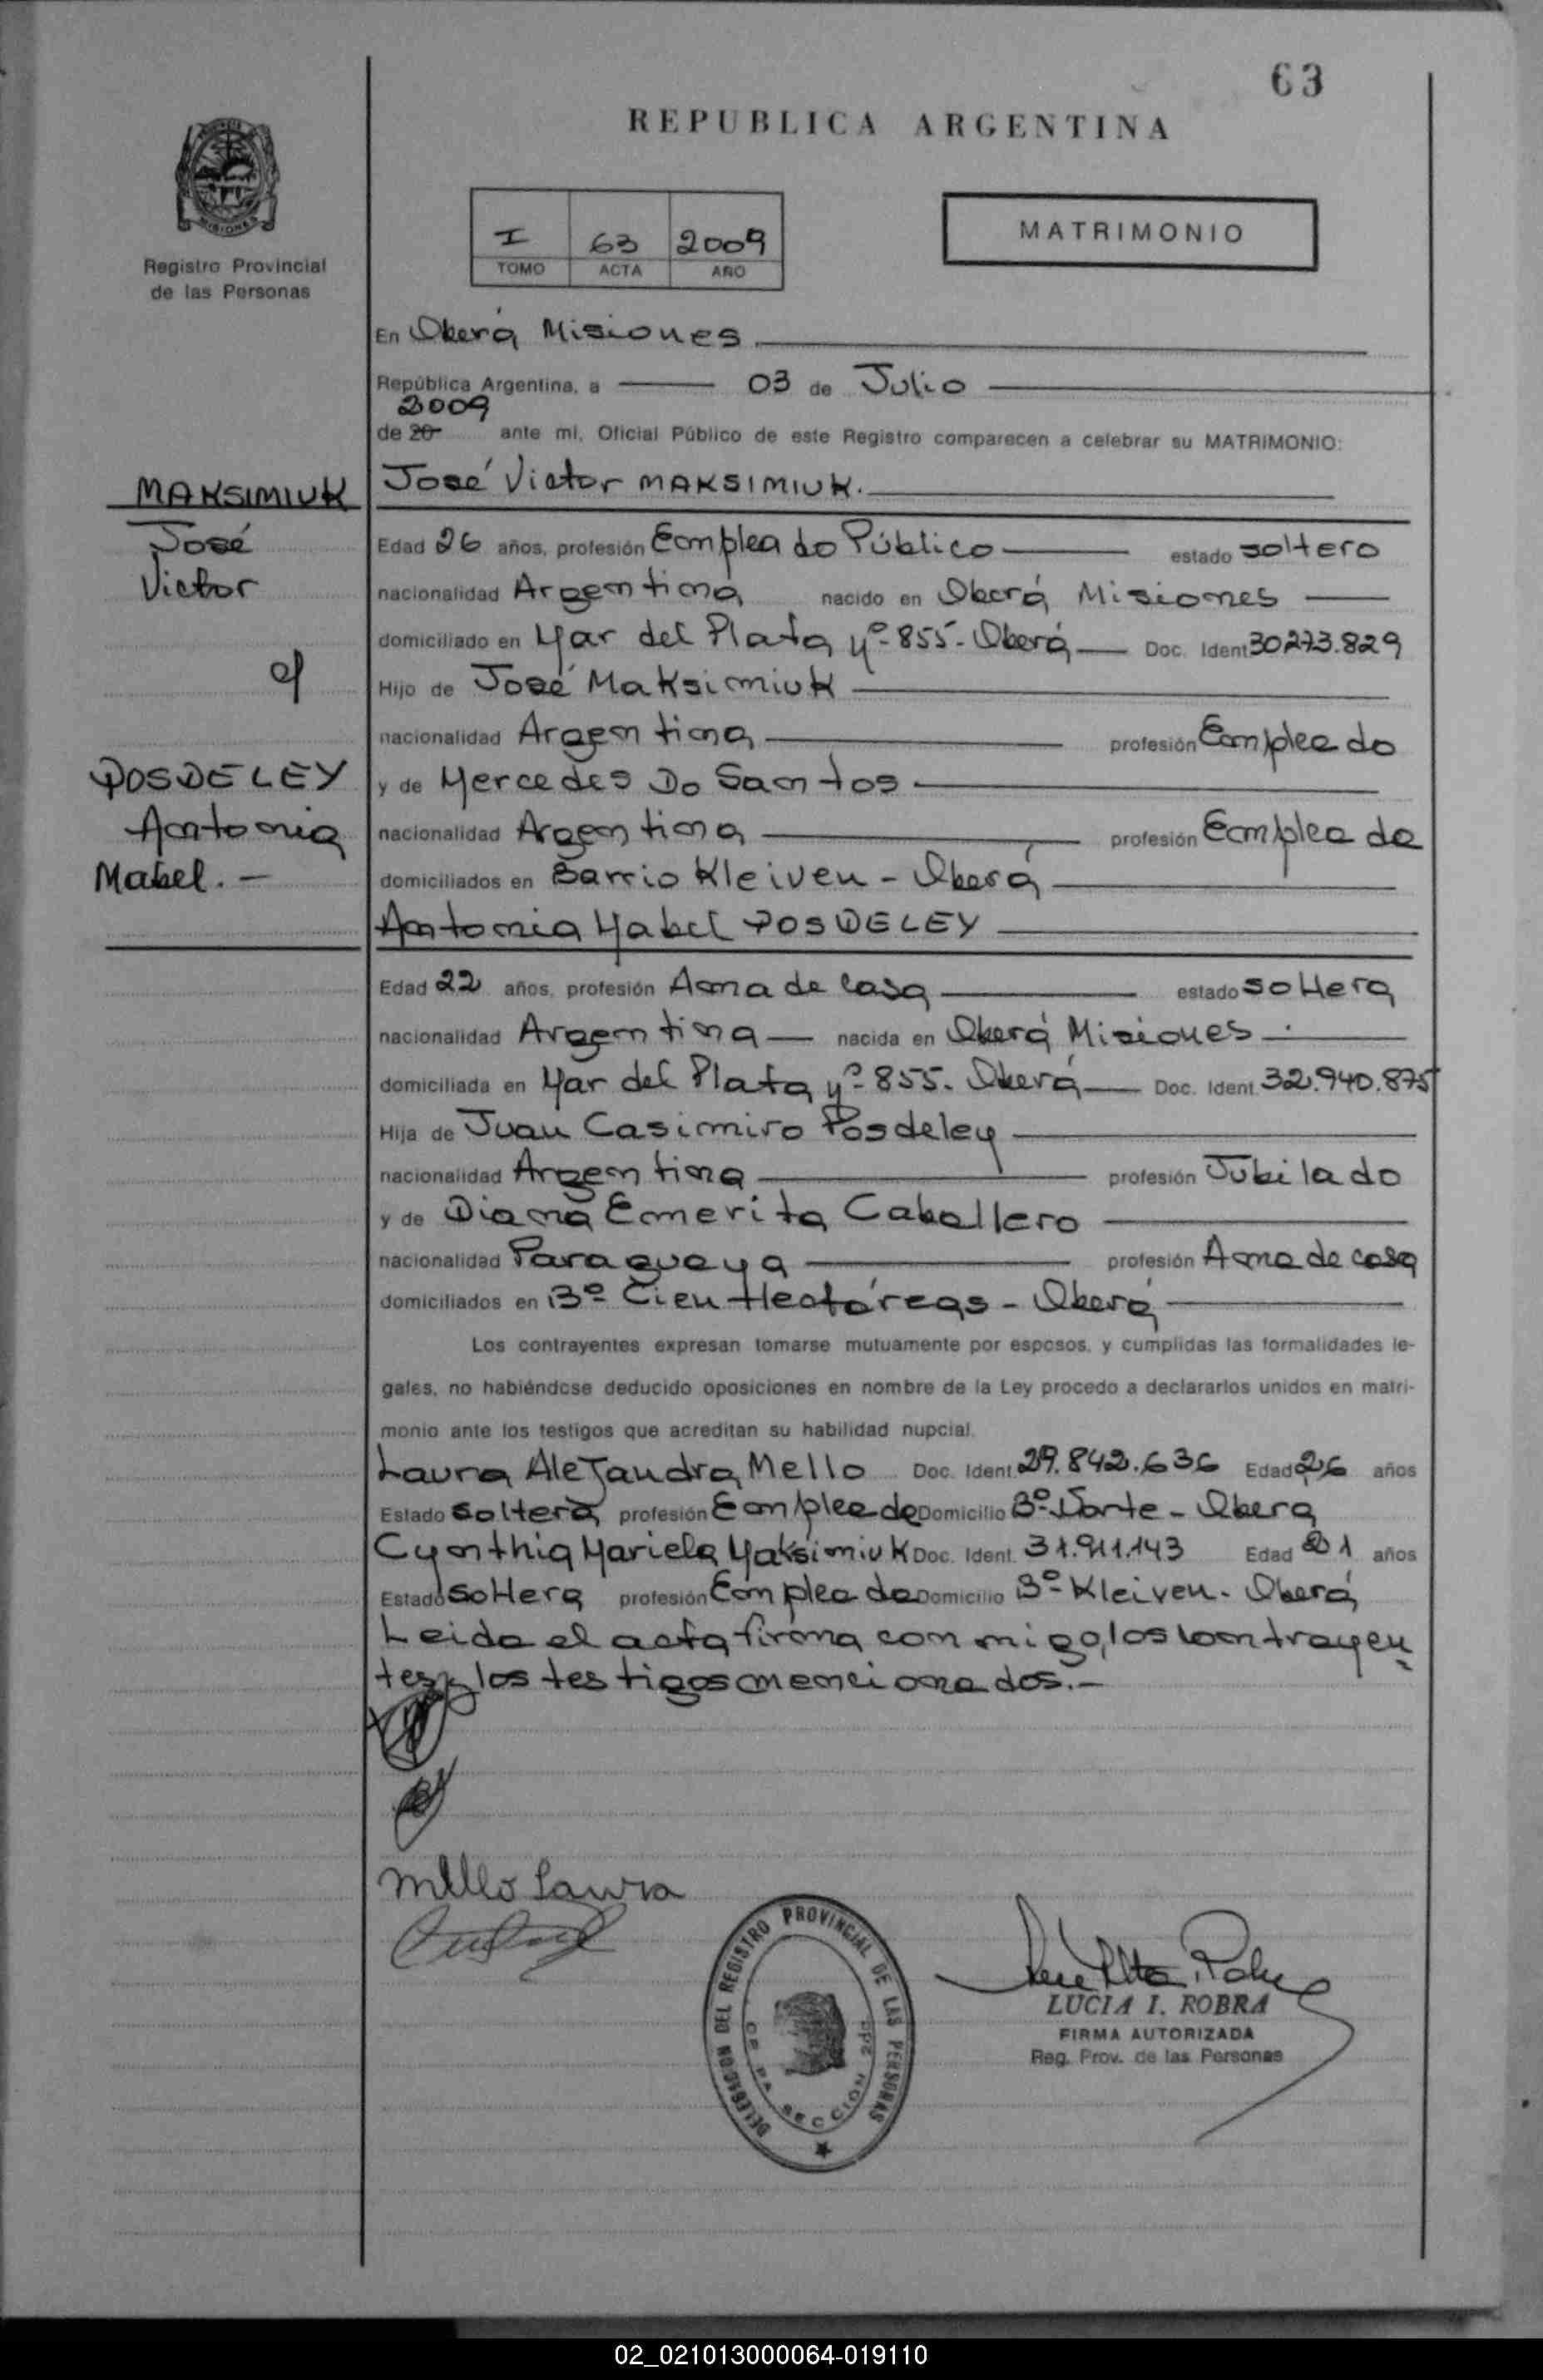 63
REPUBLICA ARGENTINA
MISIONES
Registro Provincial
de las Personas
I 63 2009
TOMO ACTA AÑO
MATRIMONIO
En Oberá Misiones
República Argentina, a 03 de Julio
2009
de 20 ante mi, Oficial Público de este Registro comparecen a celebrar su MATRIMONIO:
MAKSIMIUK
José
Victor
c/
POSDELEY
Antonia
Mabel.-
José Victor MAKSIMIUK.
Edad 26 años, profesión Empleado Público estado soltero
nacionalidad Argentina nacido en Oberá Misiones
domiciliado en Mar del Plata Nº-855-Oberá Doc. Ident 30273.829
Hijo de José Maksimiuk
nacionalidad Argentina profesión Empleado
y de Mercedes Do Santos
nacionalidad Argentina profesión Empleada
domiciliados en Barrio Kleiven - Oberá
Antonia Mabel POSDELEY
Edad 22 años, profesión Ama de Casa estado soltera
nacionalidad Argentina nacida en Oberá Misiones
domiciliada en Mar del Plata Nº-855. Oberá Doc. Ident. 32.940.875
Hija de Juan Casimiro Posdeley
nacionalidad Argentina profesión Jubilado
y de Diana Emerita Caballero
nacionalidad Paraguaya profesión Ama de casa
domiciliados en Bº Cien Hectáreas - Oberá
Los contrayentes expresan tomarse mutuamente por esposos, y cumplidas las formalidades le-
gales, no habiéndose deducido oposiciones en nombre de la Ley procedo a declararlos unidos en matri-
monio ante los testigos que acreditan su habilidad nupcial.
Laura Alejandra Mello Doc. Ident 29.842.636 Edad 26 años
Estado Soltera profesión Empleada Domicilio Bº-Norte - Oberá
Cynthia Mariela Maksimiuk Doc. Ident. 31.911.143 Edad 21 años
Estado Soltera profesión Empleada Domicilio Bº-Kleiven. Oberá
Leida el acta firma conmigo, los contrayen
tes y los testigos mencionados.-
Mello Laura
DELEGACION DEL REGISTRO PROVINCIAL DE LAS PERSONAS
SECCIÓN
LUCIA I. ROBRA
FIRMA AUTORIZADA
Reg. Prov. de las Personas
02_021013000064-019110